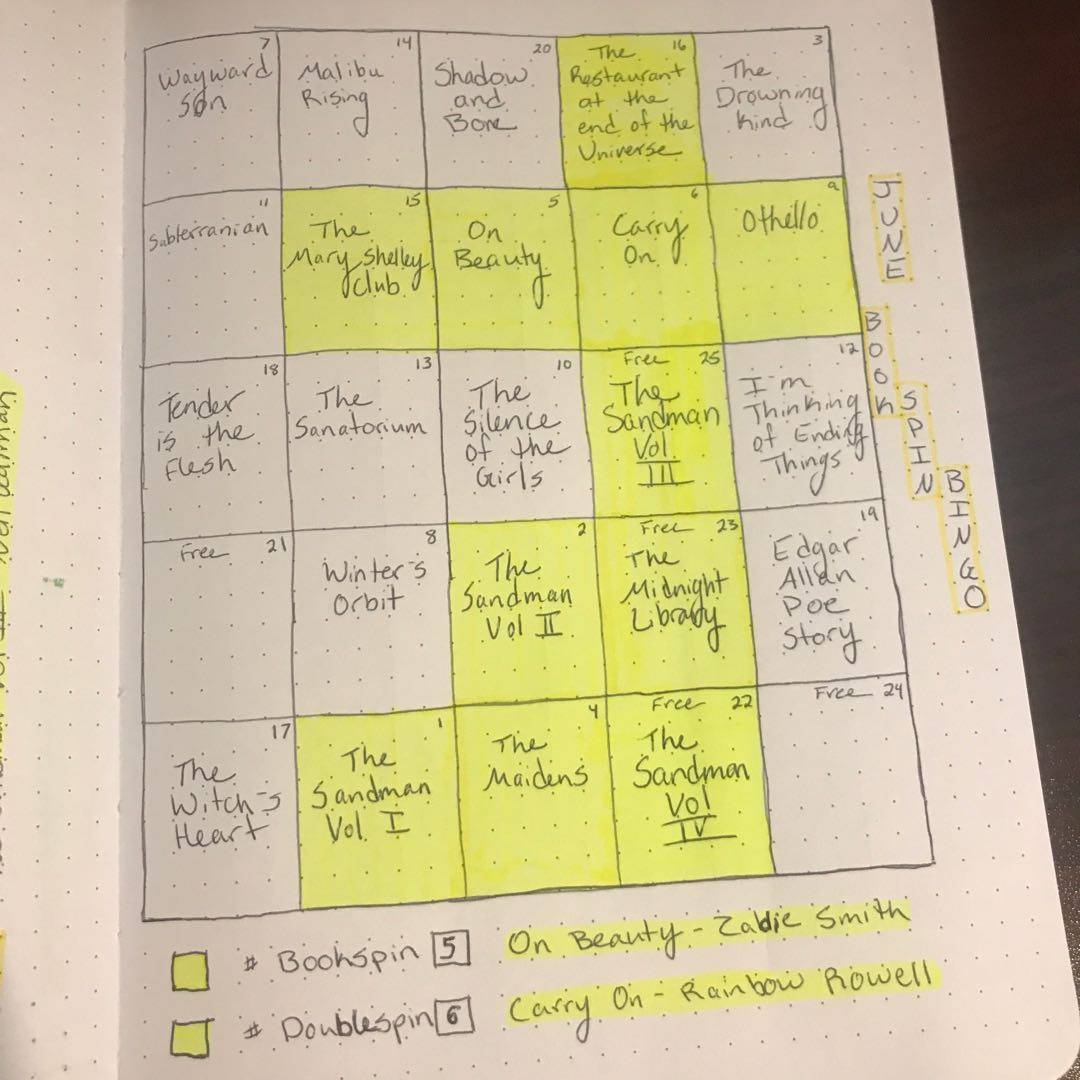 7
Wayward
Son
14
Malibu
Rising
20
Shadow
and
Bone
16
The
Restaurant
at the
end of the
Universe
3
The
Drowning
Kind
11
Subterranian
15
The
Mary Shelley
Club
5
On
Beauty
6
Carry
On
9
Othello
18
Tender
is the
Flesh
13
The
Sanatorium
10
The
Silence
of the
Girls
Free 25
The
Sandman
Vol
III
12
I'm
Thinking
of Ending
Things
Free 21
8
Winter's
Orbit
2
The
Sandman
Vol II
Free 23
The
Midnight
Library
19
Edgar
Allan
Poe
Story
17
The
Witch's
Heart
1
The
Sandman
Vol. I
4
The
Maidens
Free 22
The
Sandman
Vol
IV
Free 24
JUNE
BOOK
SPIN
BINGO
# Bookspin 5 On Beauty - Zadie Smith
# Doublespin 6 Carry On - Rainbow Rowell